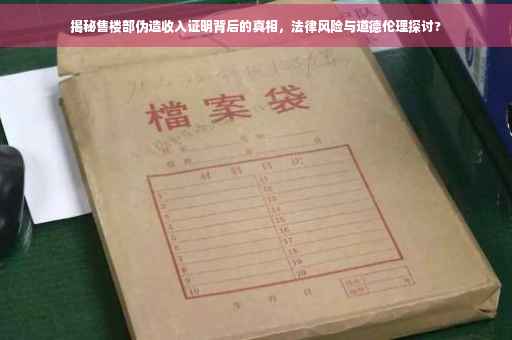 揭秘售楼部伪造收入证明背后的真相，法律风险与道德伦理探讨？
檔案袋
材料目次
1 11
2 12
3 13
4 14
5 15
6 16
7 17
8 18
9 19
10 20
年月日